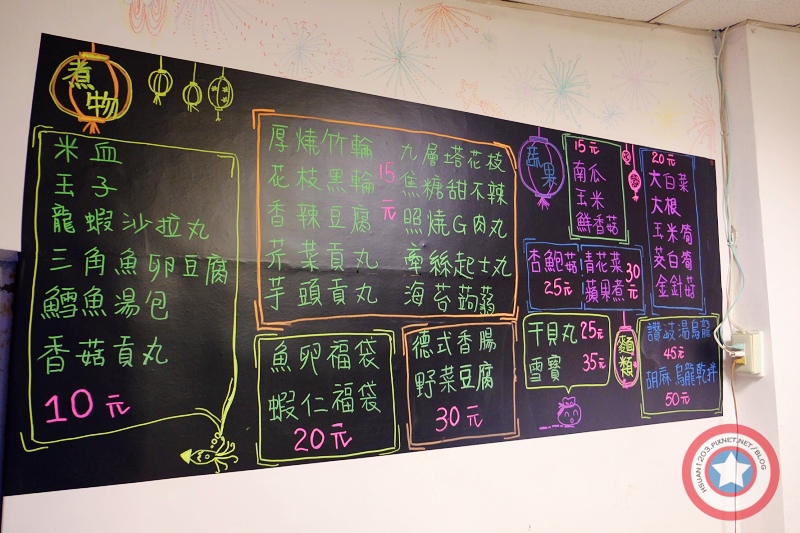 煮物
米血
玉子
龍蝦沙拉丸
三角魚卵豆腐
鱈魚湯包
香菇貢丸
10元
厚燒竹輪
花枝黑輪
香辣豆腐
芥菜貢丸
芋頭貢丸
15元
九層塔花枝
焦糖甜不辣
照燒G肉丸
牽絲起士丸
海苔蒟蒻
魚卵福袋
蝦仁福袋
20元
德式香腸
野菜豆腐
30元
蔬果
15元
南瓜
玉米
鮮香菇
20元
大白菜
大根
玉米筍
茭白筍
金針菇
杏鮑菇
25元
青花菜
蘋果煮
30元
干貝丸 25元
雪寶 35元
麵類
讚岐湯烏龍
45元
胡麻烏龍乾拌
50元
HSUAN1203.PIXNET.NET/BLOG